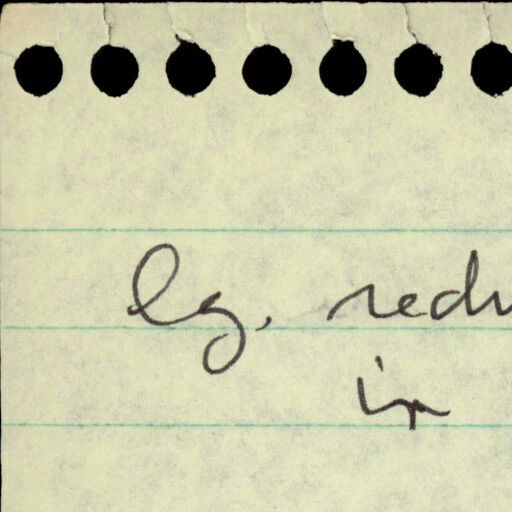 lg. redu
in